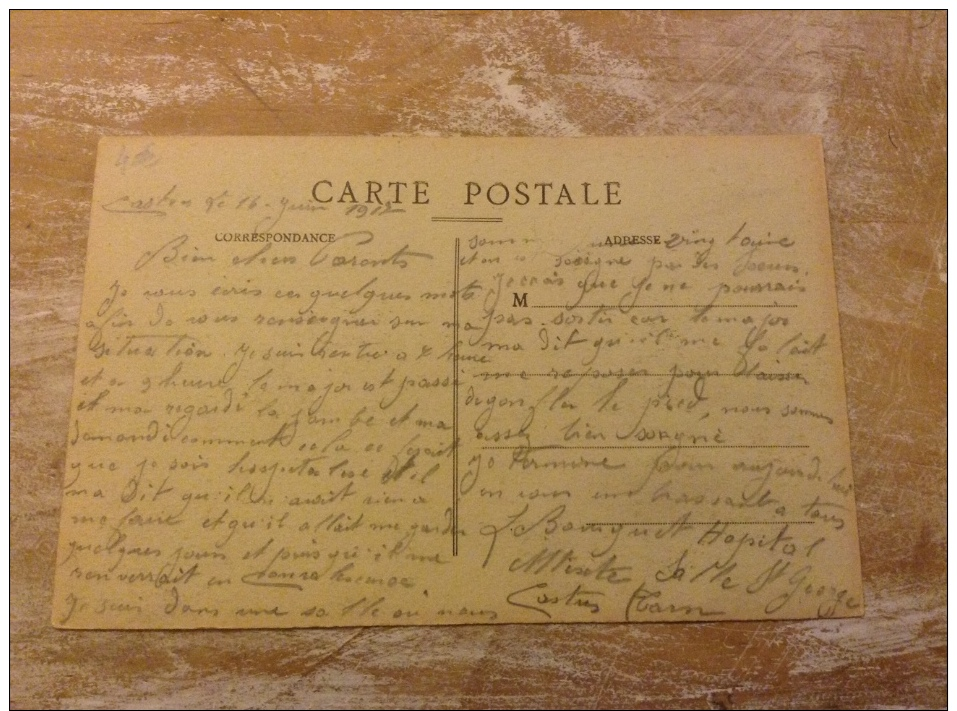 CARTE POSTALE
Castres le 16 Juin 1912
CORRESPONDANCE
Bien chers Parents
Je vous écris ces quelques mots
afin de vous renseigner sur ma
situation. Je suis rentré a 8 heure
et a 9 heure le major est passé
et ma regardé la jambe et ma
demandé comment cela ce fesait
que je sois hospitalisé et il
ma dit qu'il n'avait rien a
me faire et qu'il allait me garder
quelques jours et puis qu'il me
renverrait en
Je suis dans une salle où nous
ADRESSE
somme vingt
et on soigné par des soeurs.
Je crois que je ne pourrais
M
pas sortir car le major
ma dit qu'il me fallait
me reposer pour
degonfler le pied, nous sommes
assez bien soigné
Je termine pour aujourdhui
en vous embrassant a tous
L. Hopital
Mixte Salle St George
Castres Tarn